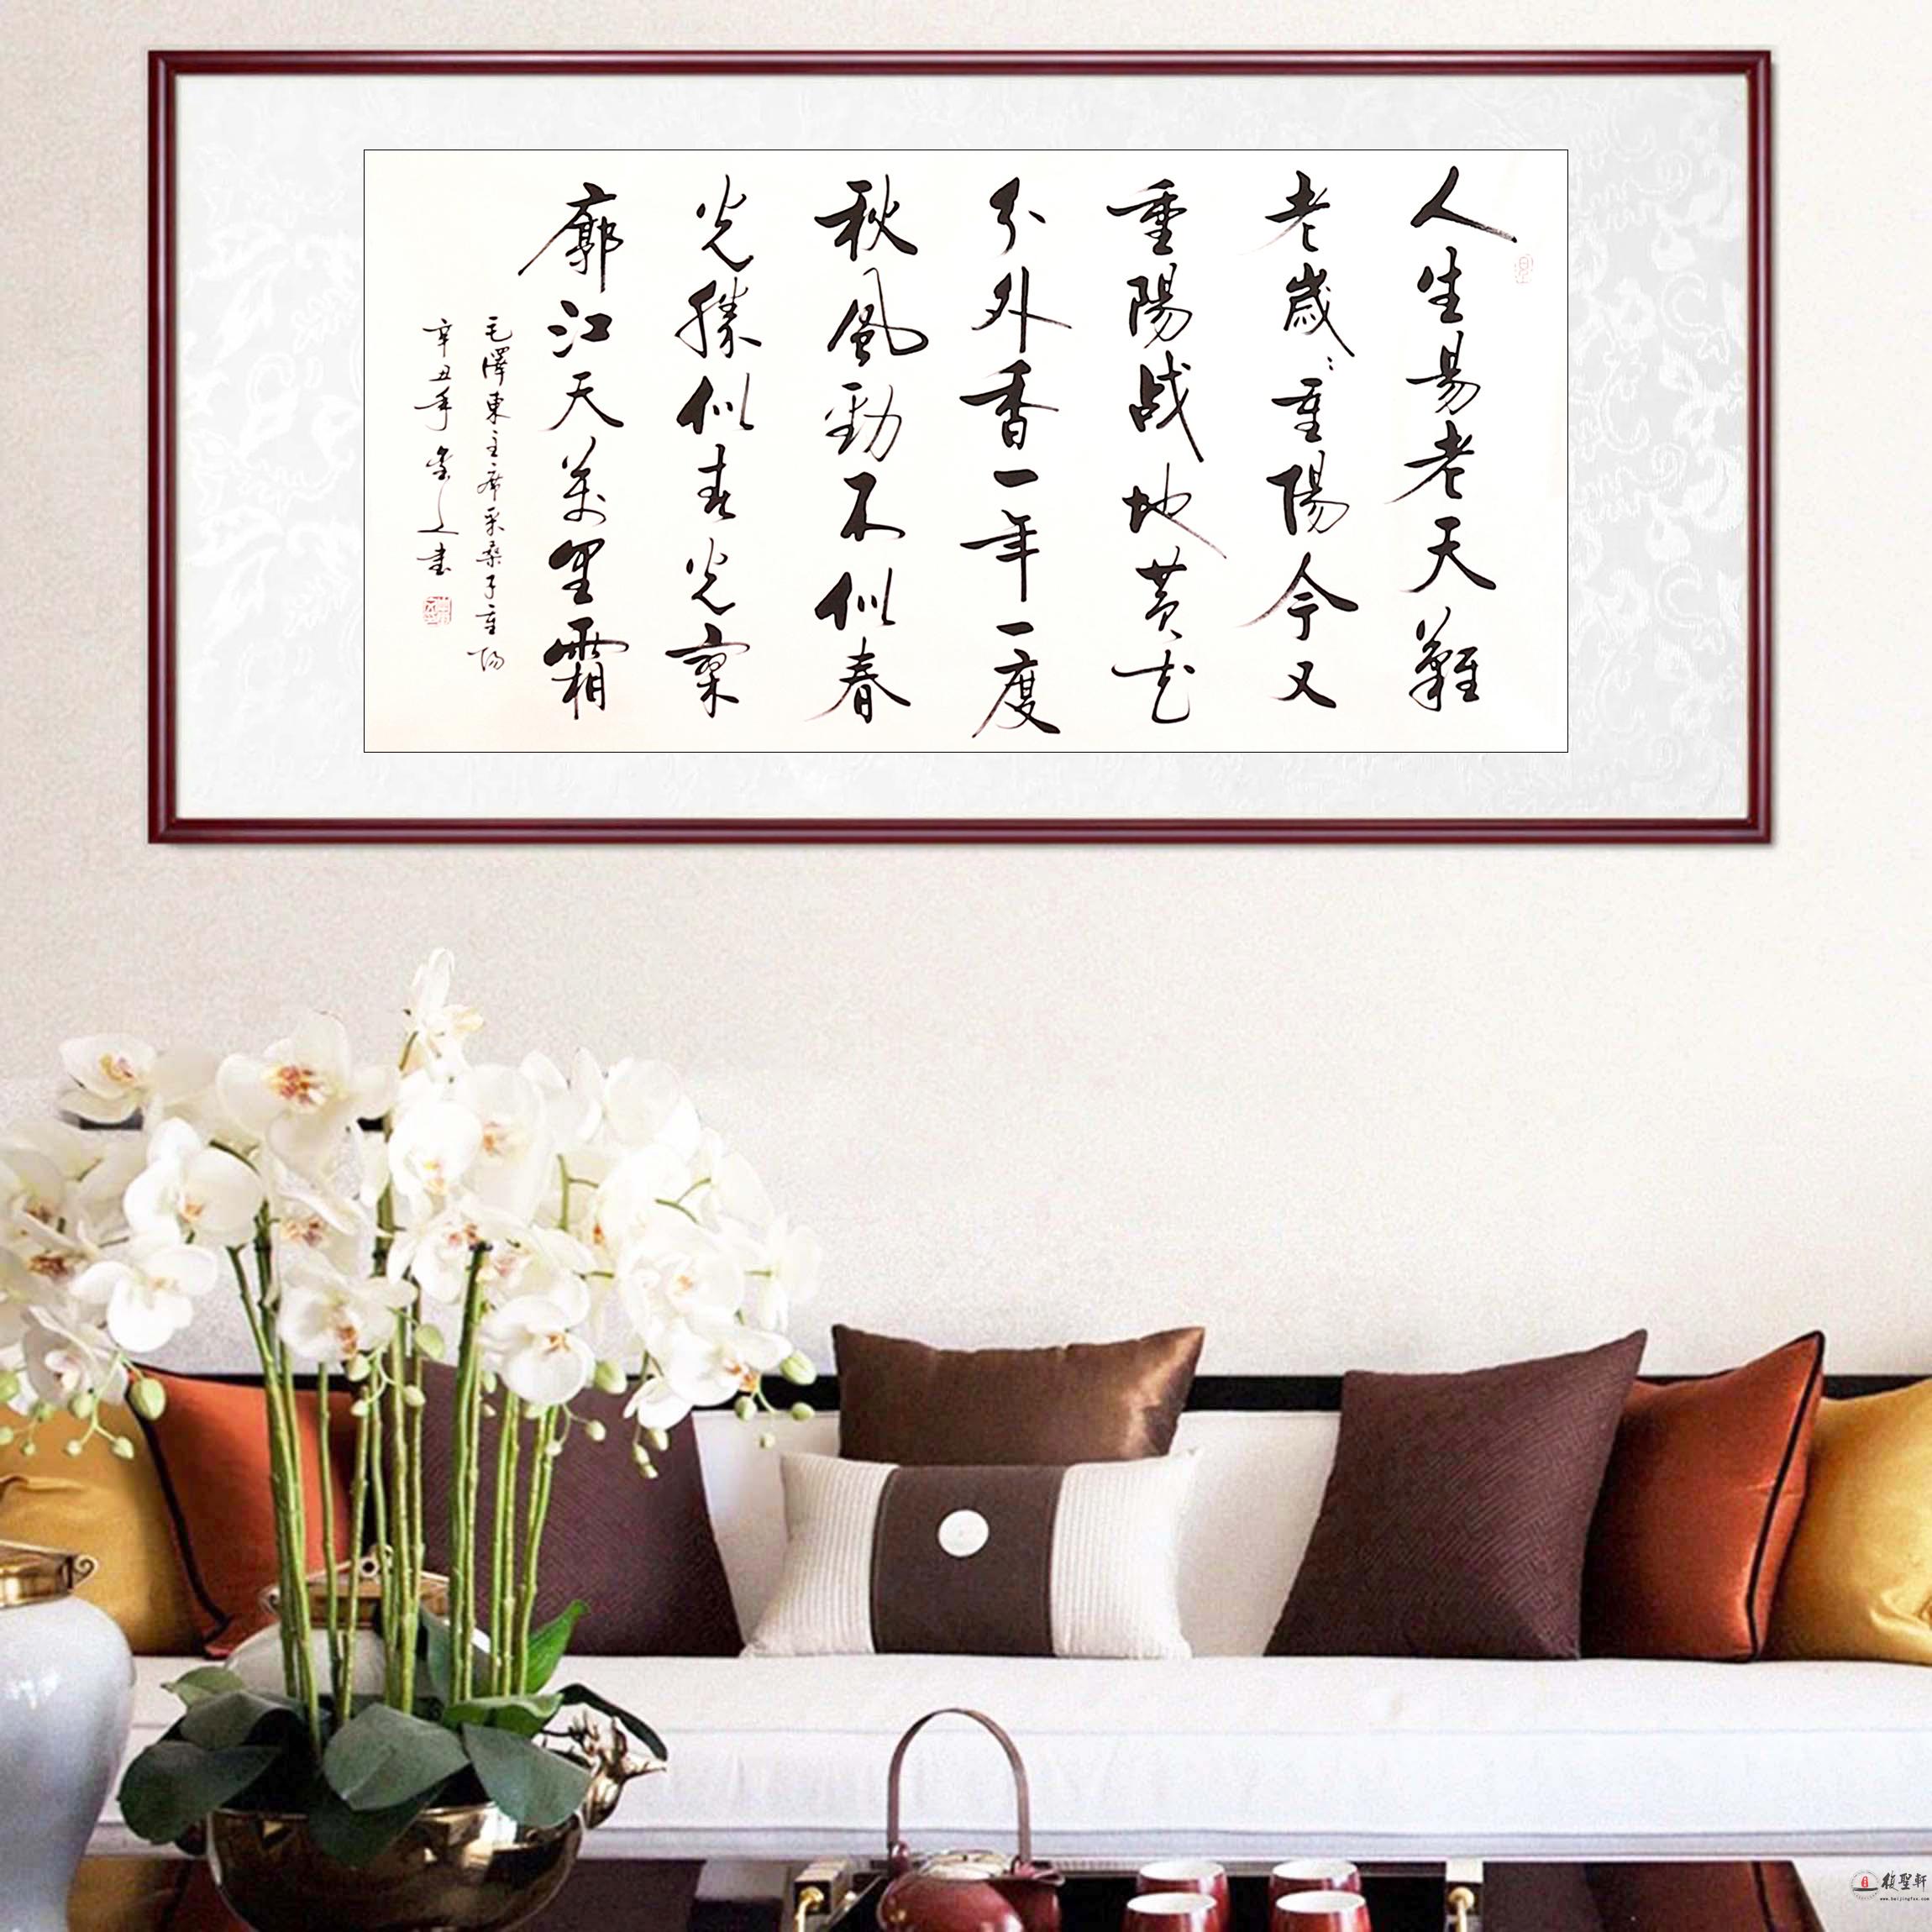 人生易老天難
老歲〻重陽今又
重陽战地黄花
分外香一年一度
秋風勁不似春
光勝似春光寥
廓江天萬里霜
毛澤東主席采桑子重陽
辛丑年
书
www.beijingfsx.com